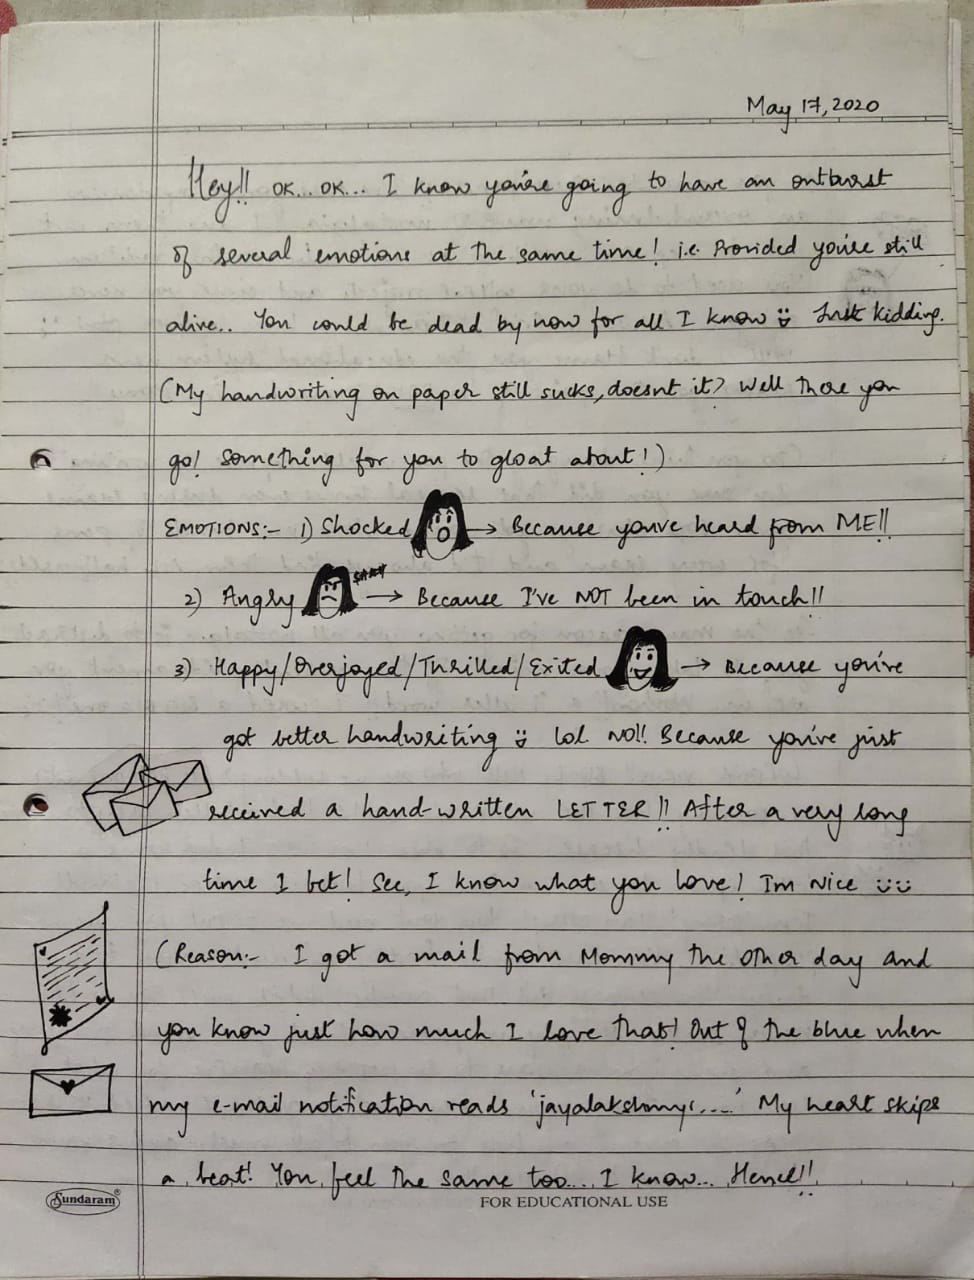 May 17, 2020
Hey!! OK... OK... I know you're going to have an outburst
of several emotions at the same time! i.e. Provided you're still
alive.. You could be dead by now for all I know Just kidding.
(My handwriting on paper still sucks, doesnt it? Well there you
go! Something for you to gloat about!)
EMOTIONS:- 1) Shocked → Because youve heard from ME!!
2) Angry → Because I've NOT been in touch!!
3) Happy/Overjoyed/Thrilled/Exited → Because you've
got better handwriting lol NO!! Because you've just
received a hand-written LETTER!! After a very long
time I bet! See, I know what you love! I'm Nice
(Reason:- I got a mail from Mommy the other day and
you know just how much I love that! Out of the blue when
my e-mail notification reads 'jayalakshmyr....' My heart skips
a beat! You feel the same too.... I know... Hence!!
Sundaram®
FOR EDUCATIONAL USE